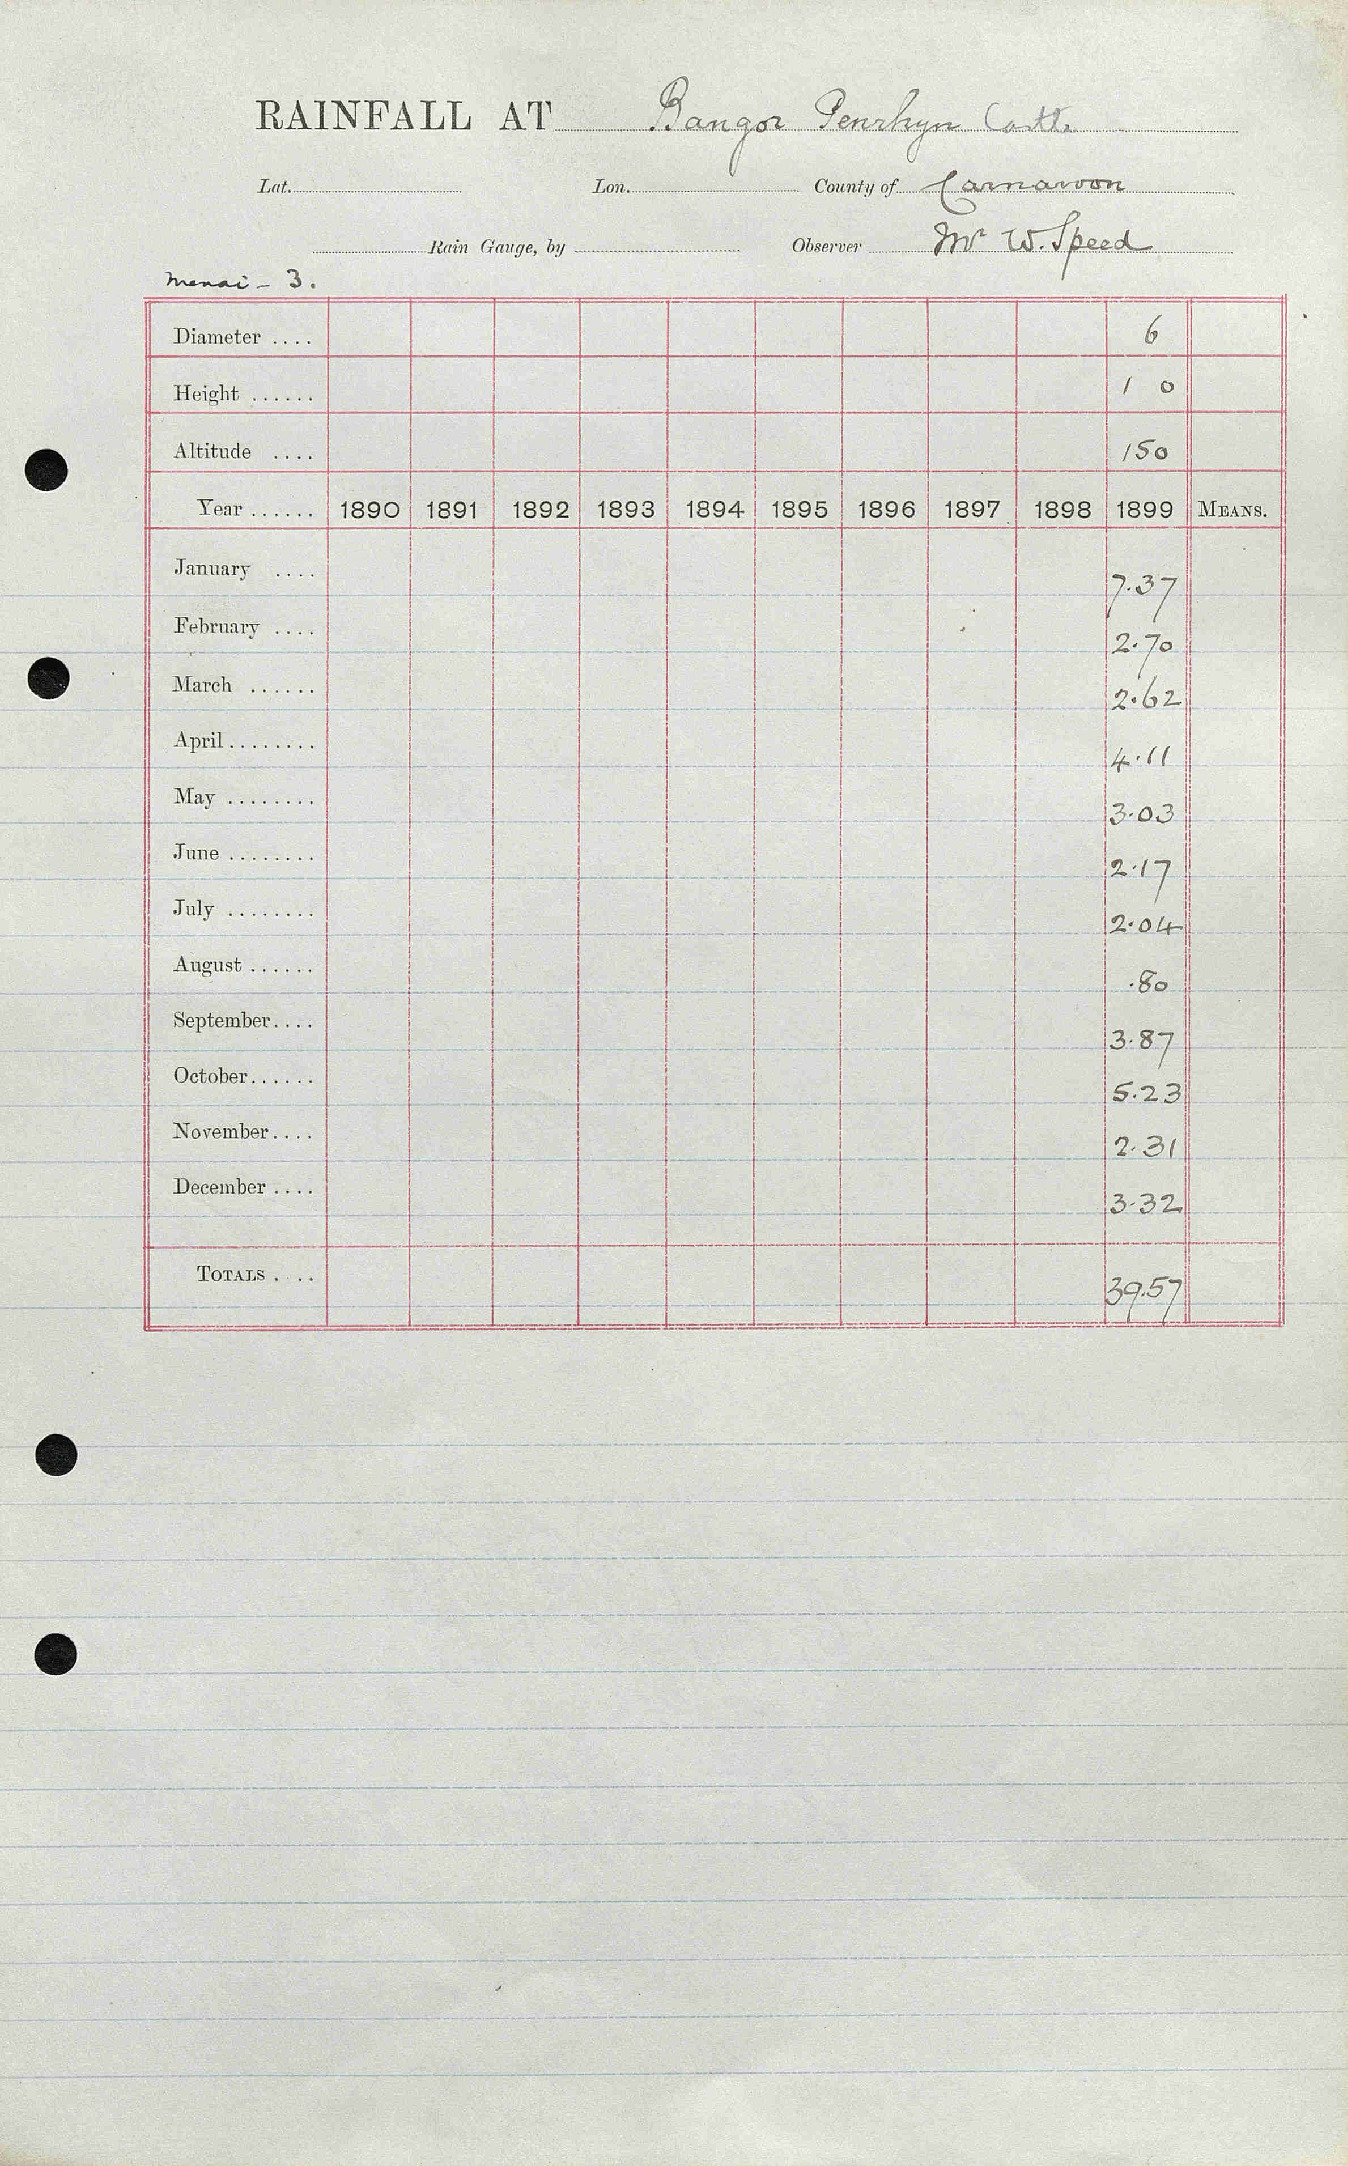 RAINFALL AT Bangor Penrhyn Castle
Lat. Lon. County of Carnarvon
Rain Gauge, by Observer Mr W. Speed
Menai - 3.
Diameter .... 6
Height ...... 1 0
Altitude .... 150
Year ...... 1890 1891 1892 1893 1894 1895 1896 1897 1898 1899 MEANS.
January .... 7.37
February .... 2.70
March ...... 2.62
April ........ 4.11
May ........ 3.03
June ........ 2.17
July ........ 2.04
August ...... .80
September.... 3.87
October...... 5.23
November.... 2.31
December .... 3.32
TOTALS .... 39.57